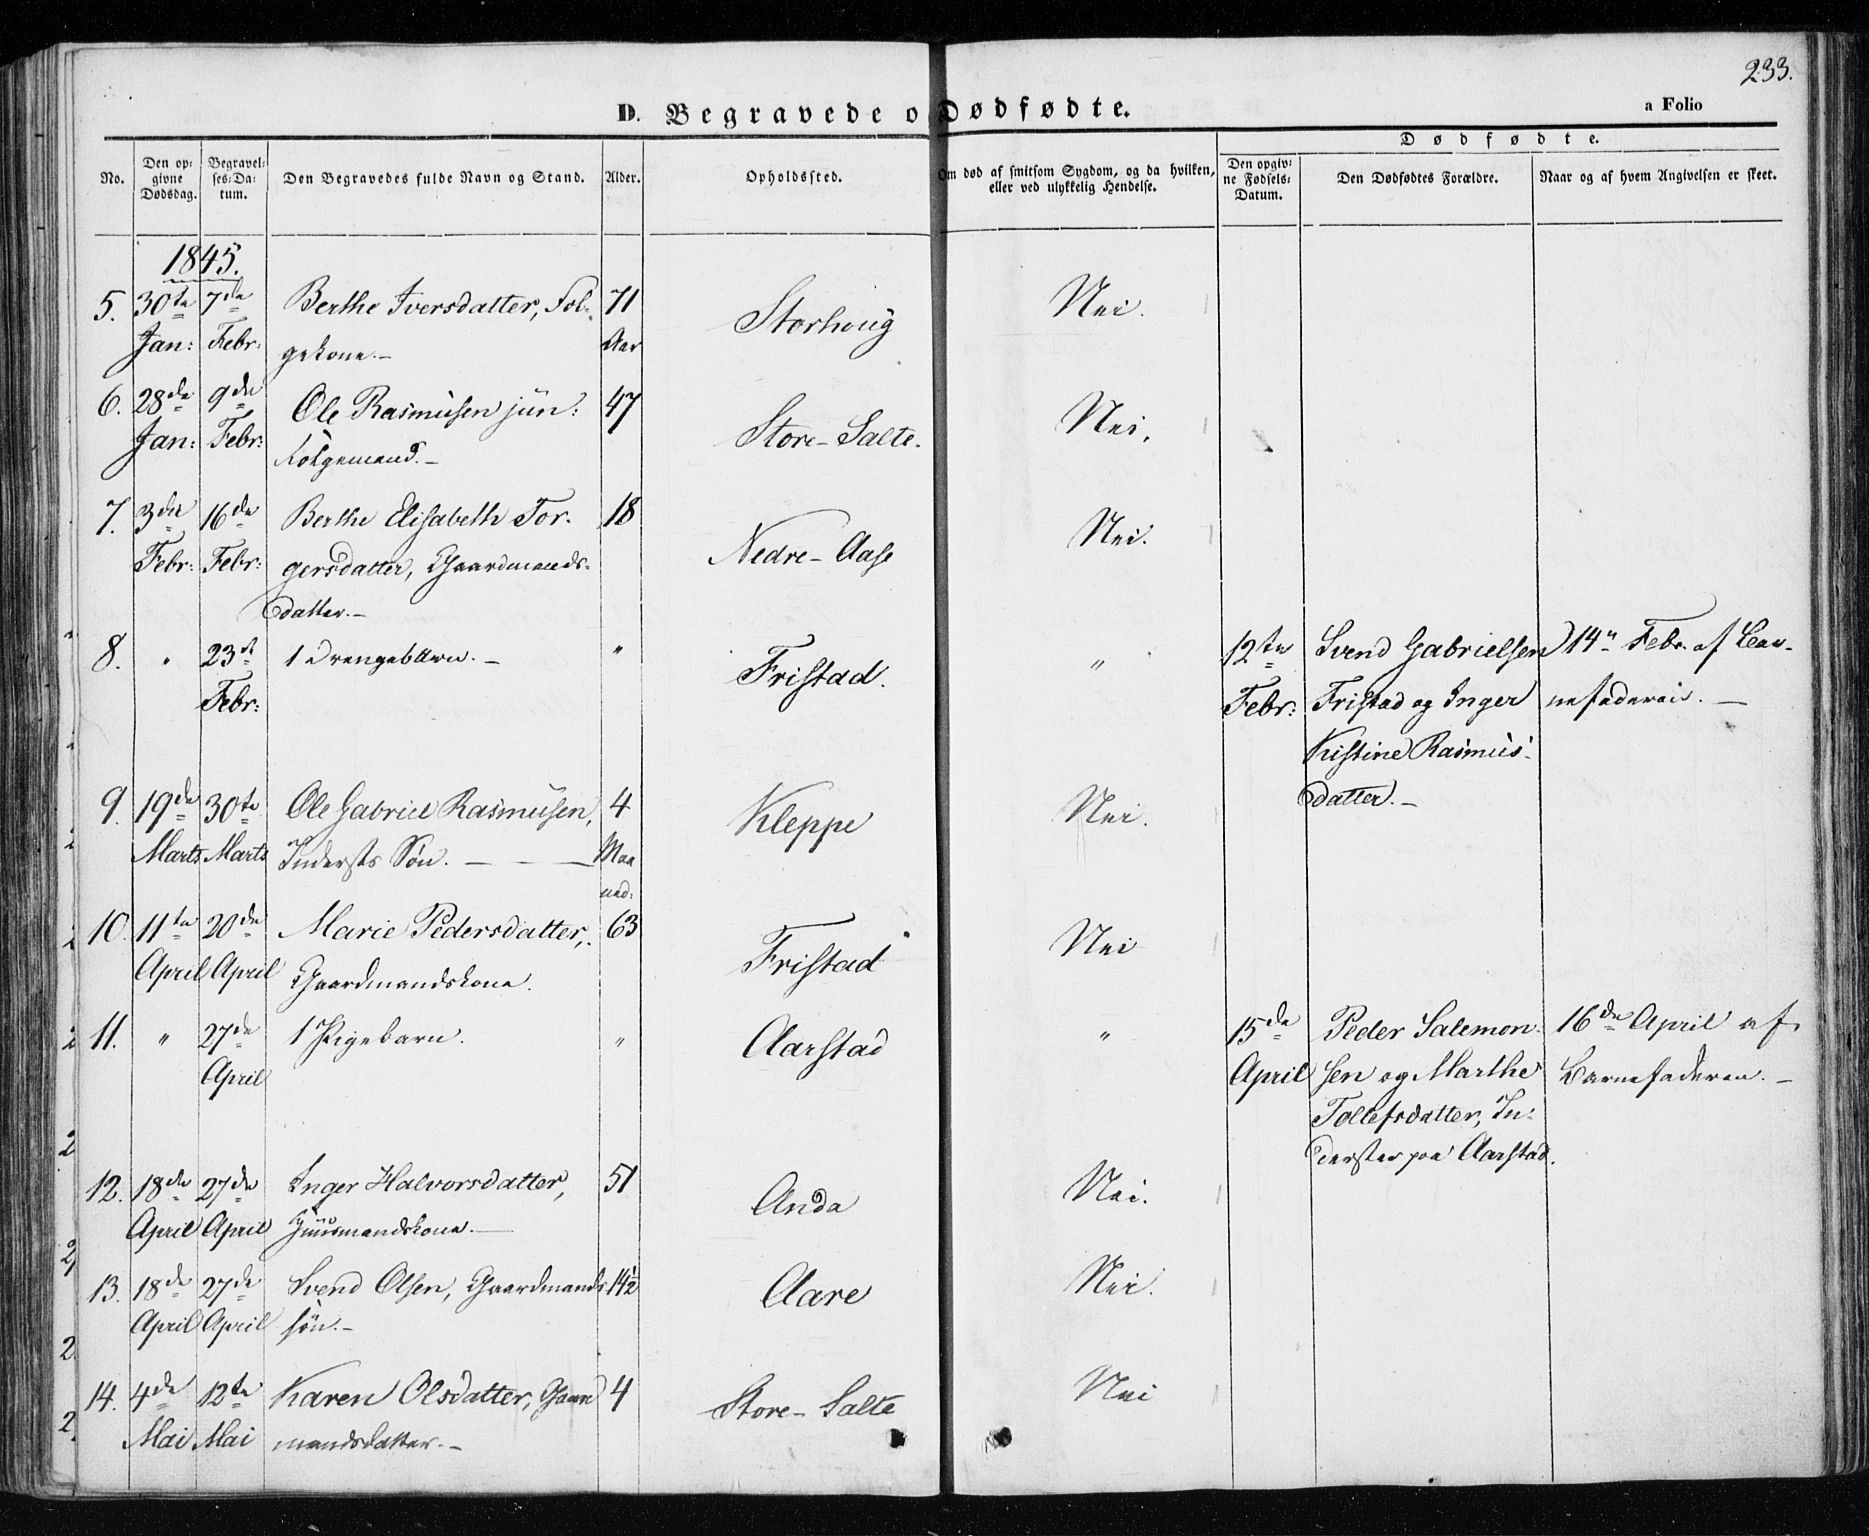 233.
D. Begravede o Dødfødte. a Folio
Dødfødte.
No. Den opgivne Dødsdag. Begravelses-Datum. Den Begravedes fulde Navn og Stand. Alder. Opholdssted. Om død af smitsom Sygdom, og da hvilken, eller ved ulykkelig Hendelse. Den opgivne Fødsels-Datum. Den Dødfødtes Forældre. Naar og af hvem Angivelsen er skeet.
1845.
5. 30te 7de Berthe Iversdatter, Fol- 71 Storhoug Nei.
Jan: Febr: gekone.- Aar
6. 28de 9de Ole Rasmusen jun: 47 Store-Salte. Nei.
Jan: Febr: Folgemand.-
7. 3die 16de Berthe Elisabeth Tor- 18 Nedre-Aase Nei.
Febr: Febr: gersdatter, Gaardmands-
datter.-
8. " 23de 1 Drengebarn.- " Fristad. " 12te Svend Gabrielsen 14de Febr. af Bar-
Febr: Febr: Fristad og Inger nefaderen.-
Kistine Rasmus-
datter.-
9. 19de 30te Ole Gabriel Rasmusen, 4 Kleppe Nei.
Marts Marts Indersts Søn.- Maa
ned:
10. 11te 20de Marie Pedersdatter, 63 Fristad Nei
April April Gaardmandskone.
11. " 27de 1 Pigebarn. " Aarstad " 15de Peder Salemon- 16de April af
April April sen og Marthe Barnefaderen.-
Tollefsdatter, In-
derster paa Aarstad.
12. 18de 27de Inger Halvorsdatter, 51 Anda Nei.
April April Huusmandskone.-
13. 18de 27de Svend Olsen, Gaardmands 14½ Aare Nei.
April April søn.-
14. 4de 12te Karen Olsdatter, Gaard 4 Store-Salte Nei
Mai Mai mandsdatter.-